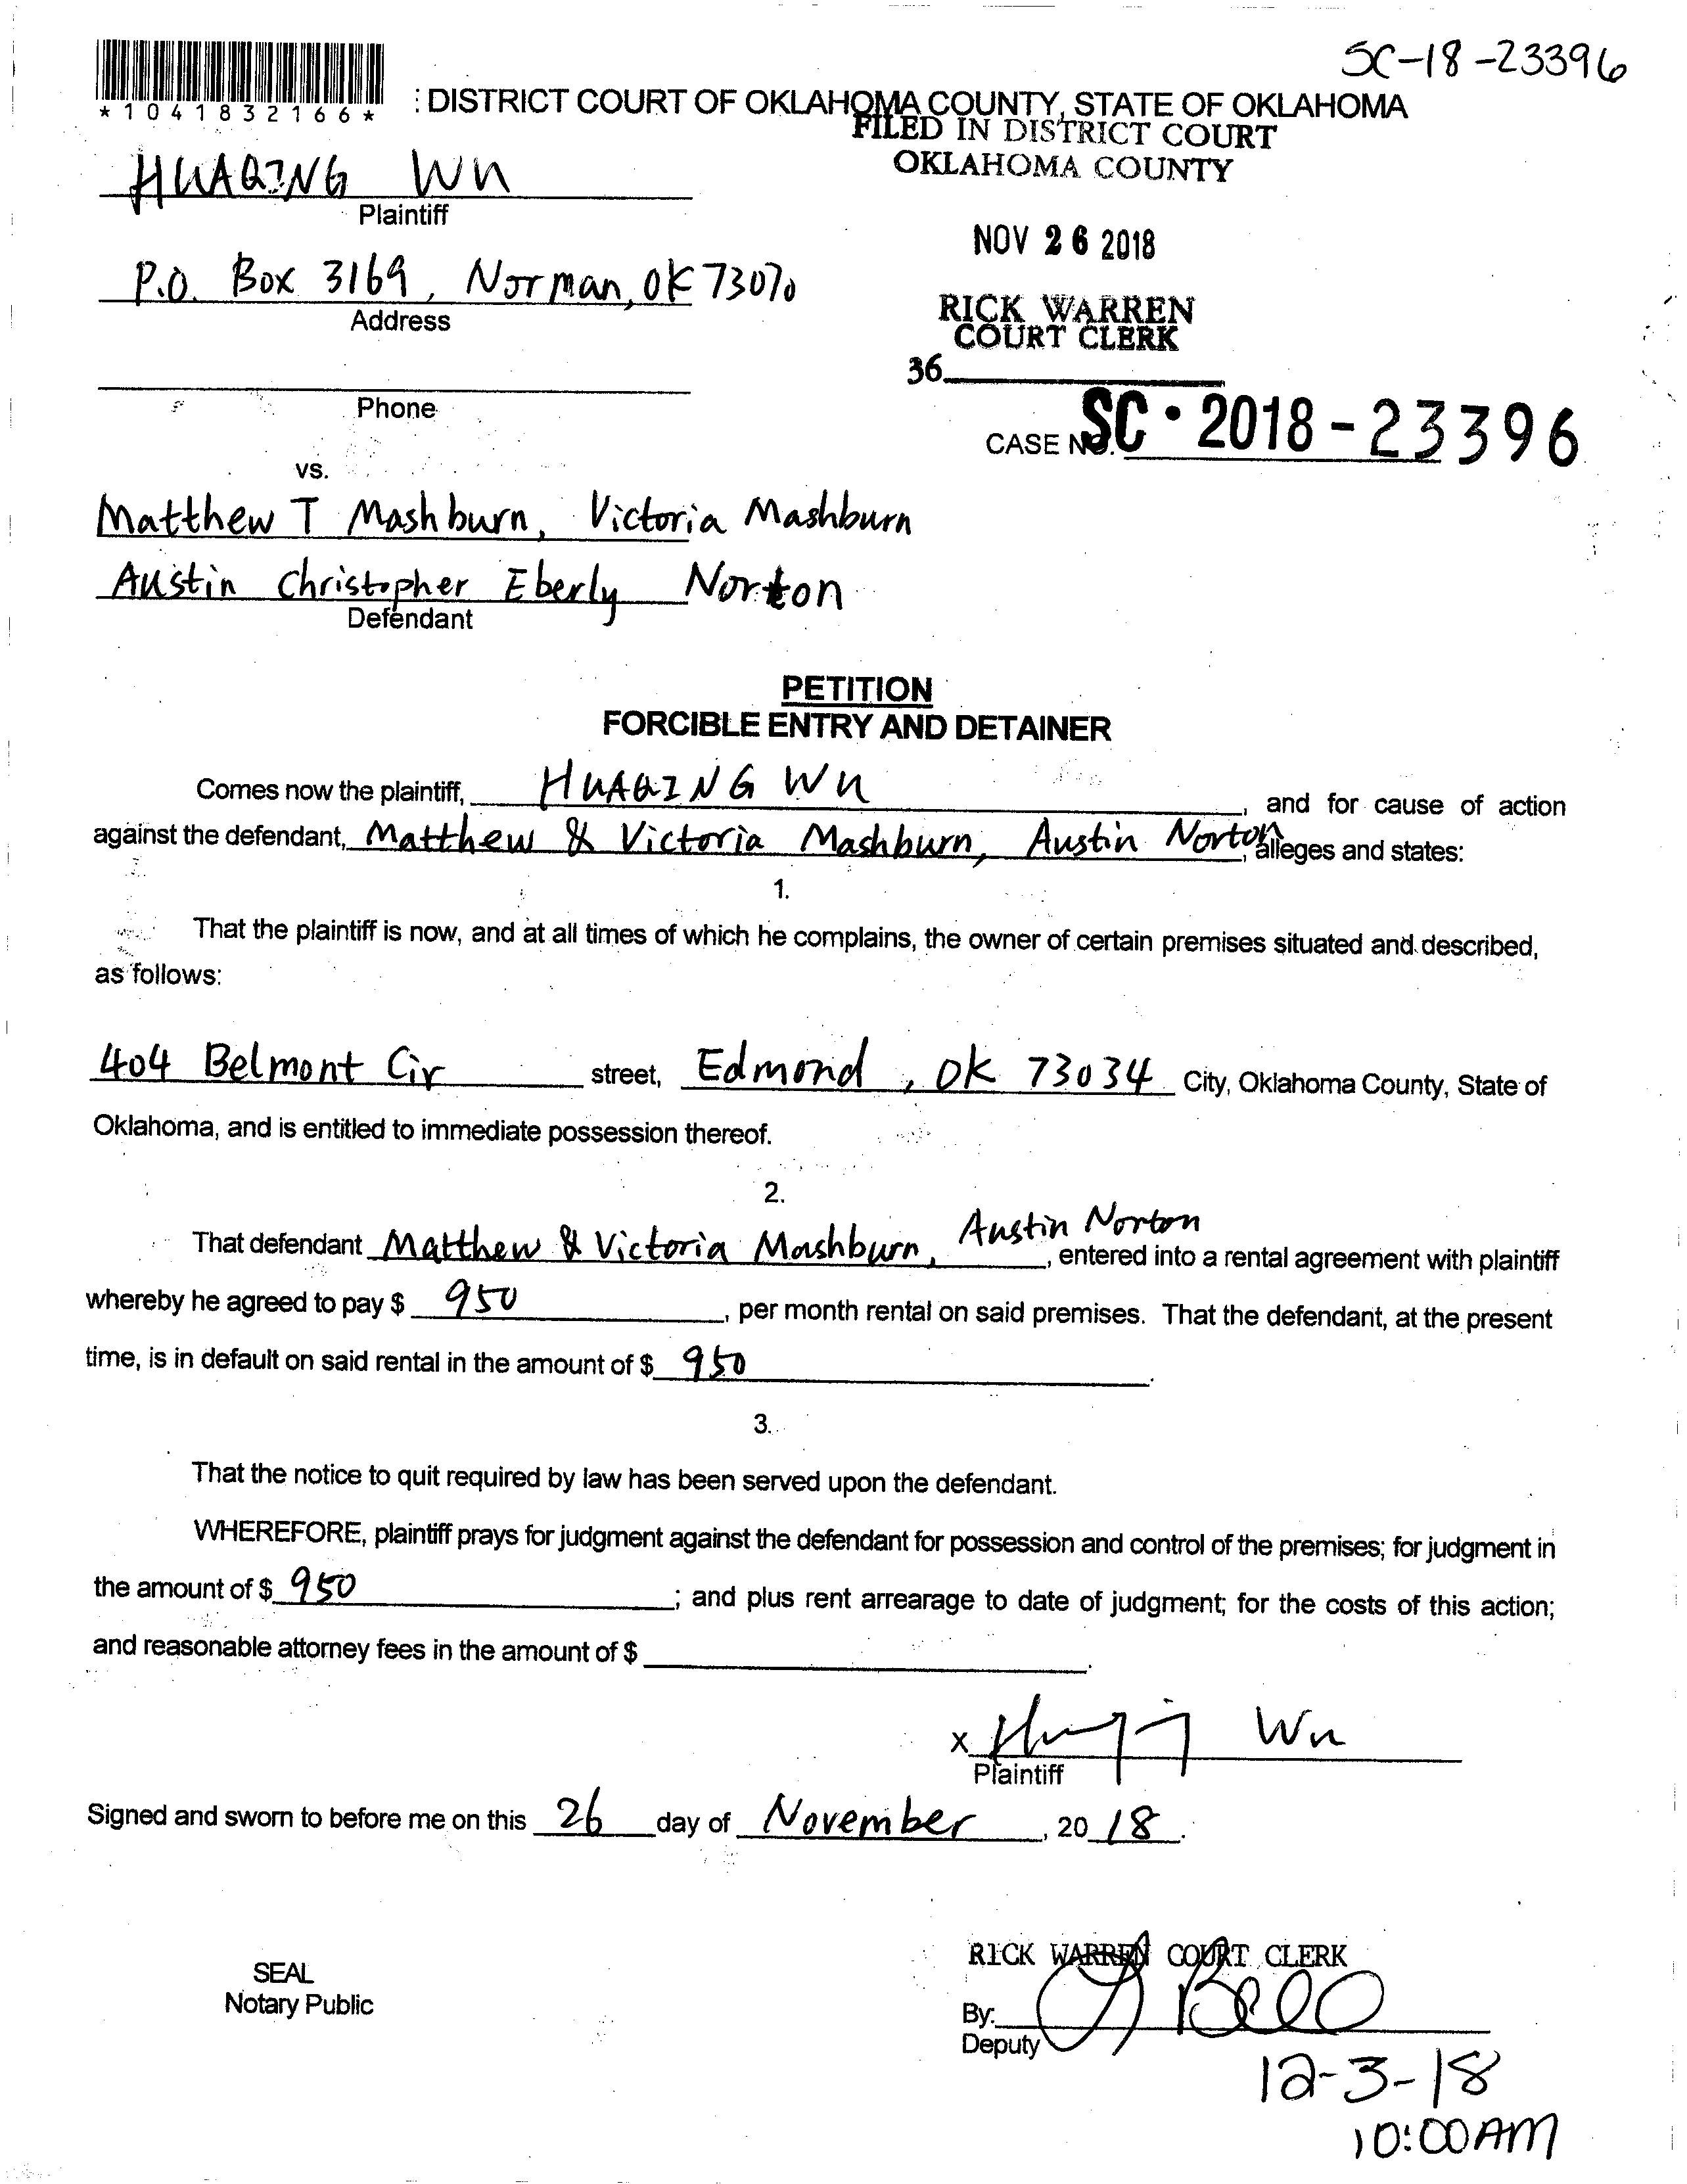 SC-18-23396
*1041832166*
: DISTRICT COURT OF OKLAHOMA COUNTY, STATE OF OKLAHOMA
FILED IN DISTRICT COURT
OKLAHOMA COUNTY
HUAQING WU
Plaintiff
NOV 26 2018
P.O. Box 3169, Norman, OK 73070
Address
RICK WARREN
COURT CLERK
36
Phone
CASE NO. SC-2018-23396
vs.
Matthew T Mashburn, Victoria Mashburn
Austin Christopher Eberly Norton
Defendant
PETITION
FORCIBLE ENTRY AND DETAINER
Comes now the plaintiff, HUAQING WU, and for cause of action
against the defendant, Matthew & Victoria Mashburn, Austin Norton, alleges and states:
1.
That the plaintiff is now, and at all times of which he complains, the owner of certain premises situated and described,
as follows:
404 Belmont Cir street, Edmond, OK 73034 City, Oklahoma County, State of
Oklahoma, and is entitled to immediate possession thereof.
2.
That defendant Matthew & Victoria Mashburn, Austin Norton, entered into a rental agreement with plaintiff
whereby he agreed to pay $ 950, per month rental on said premises. That the defendant, at the present
time, is in default on said rental in the amount of $ 950.
3.
That the notice to quit required by law has been served upon the defendant.
WHEREFORE, plaintiff prays for judgment against the defendant for possession and control of the premises; for judgment in
the amount of $ 950; and plus rent arrearage to date of judgment; for the costs of this action;
and reasonable attorney fees in the amount of $ .
x Huaqing Wu
Plaintiff
Signed and sworn to before me on this 26 day of November, 20 18.
RICK WARREN COURT CLERK
SEAL
Notary Public
By: Bell
Deputy
12-3-18
10:00AM